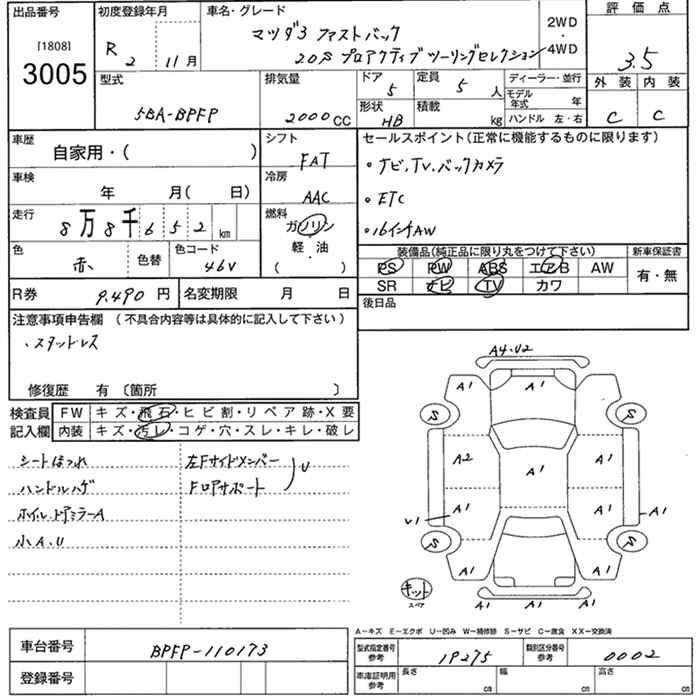 出品番号
[1808]
3005
初度登録年月
R 2 11月
車名・グレード
マツダ3 ファストバック
20S プロアクティブツーリングセレクション
2WD
・
4WD
評価点
3.5
外装 内装
C C
型式
5BA-BPFP
排気量
2000CC
ドア
5
定員
5 人
形状
HB
積載
kg
ディーラー・並行
モデル年式 年
ハンドル 左・右
車歴
自家用・( )
車検
年 月( 日)
走行
8万8千652km
色
赤
色替
色コード
46V
シフト
FAT
冷房
AAC
燃料
ガソリン
・
軽・油
( )
セールスポイント(正常に機能するものに限ります)
・ナビ,TV,バックカメラ
・ETC
・16インチAW
装備品(純正品に限り丸をつけて下さい)
PS PW ABS エアB AW
SR ナビ TV カワ
新車保証書
有・無
後日品
R券 9,490円
名変期限 月 日
注意事項申告欄 (不具合内容等は具体的に記入して下さい)
、スタッドレス
修復歴 有 〔箇所 〕
検査員記入欄
FW キズ・飛石・ヒビ割・リペア跡・X要
内装 キズ・汚レ・コゲ・穴・スレ・キレ・破レ
シートほつれ
ハンドルハゲ
ホイル、ドアミラーA
小A、U
左Fサイドメンバー
Fロアサポート
U
A4.U2
A1 A1 A1
S S
A2 A1 A1
A1 A1
U1 A1
S S
A1 A1
A1 A1 A1
キット
スペア
A-キズ E-エクボ U-凹み W-補修跡 S-サビ C-腐食 XX-交換済
車台番号
BPFP-110173
登録番号
型式指定番号
参考
19275
類別区分番号
参考
0002
車庫証明用
参考
長さ cm
幅 cm
高さ cm